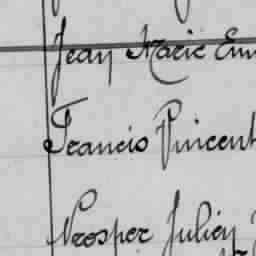 Jean Marie Em
Francis Vincent
Prosper Julien